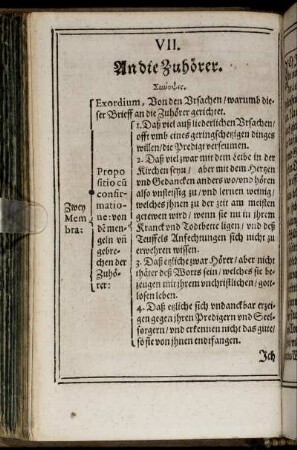 VII.
An die Zuhörer.
Σύνοψις.
Zwey
Mem
bra:
Exordium, Von den Vrsachen / warumb die-
ser Brieff an die Zuhörer gerichtet.
Propo
sitio cū
confir-
matio-
ne: von
dē men-
geln vñ
gebre-
chen der
Zuhö-
rer:
1. Daß viel auß liederlichen Vrsachen /
offt vmb eines geringschetzigen dinges
willen / die Predigt verseumen.
2. Daß viel zwar mit dem Leibe in der
Kirchen seyn / aber mit dem Hertzen
vnd Gedancken anders wo / vnd hören
also vnfleissig zu / vnd lernen wenig /
welches jhnen zu der zeit am meisten
gerewen wird / wenn sie nu in jhrem
Kranck vnd Todtbette ligen / vnd deß
Teuffels Anfechtungen sich nicht zu
erwehren wissen.
3. Daß etzliche zwar Hörer / aber nicht
thäter deß Worts sein / welches sie be-
zeugen mit jhrem vnchristlichen / gott-
losen leben.
4. Daß etzliche sich vndanckbar erzei-
gen gegen jhren Predigern vnd Seel-
sorgern / vnd erkennen nicht das gute /
so sie von jhnen entpfangen.
Ich